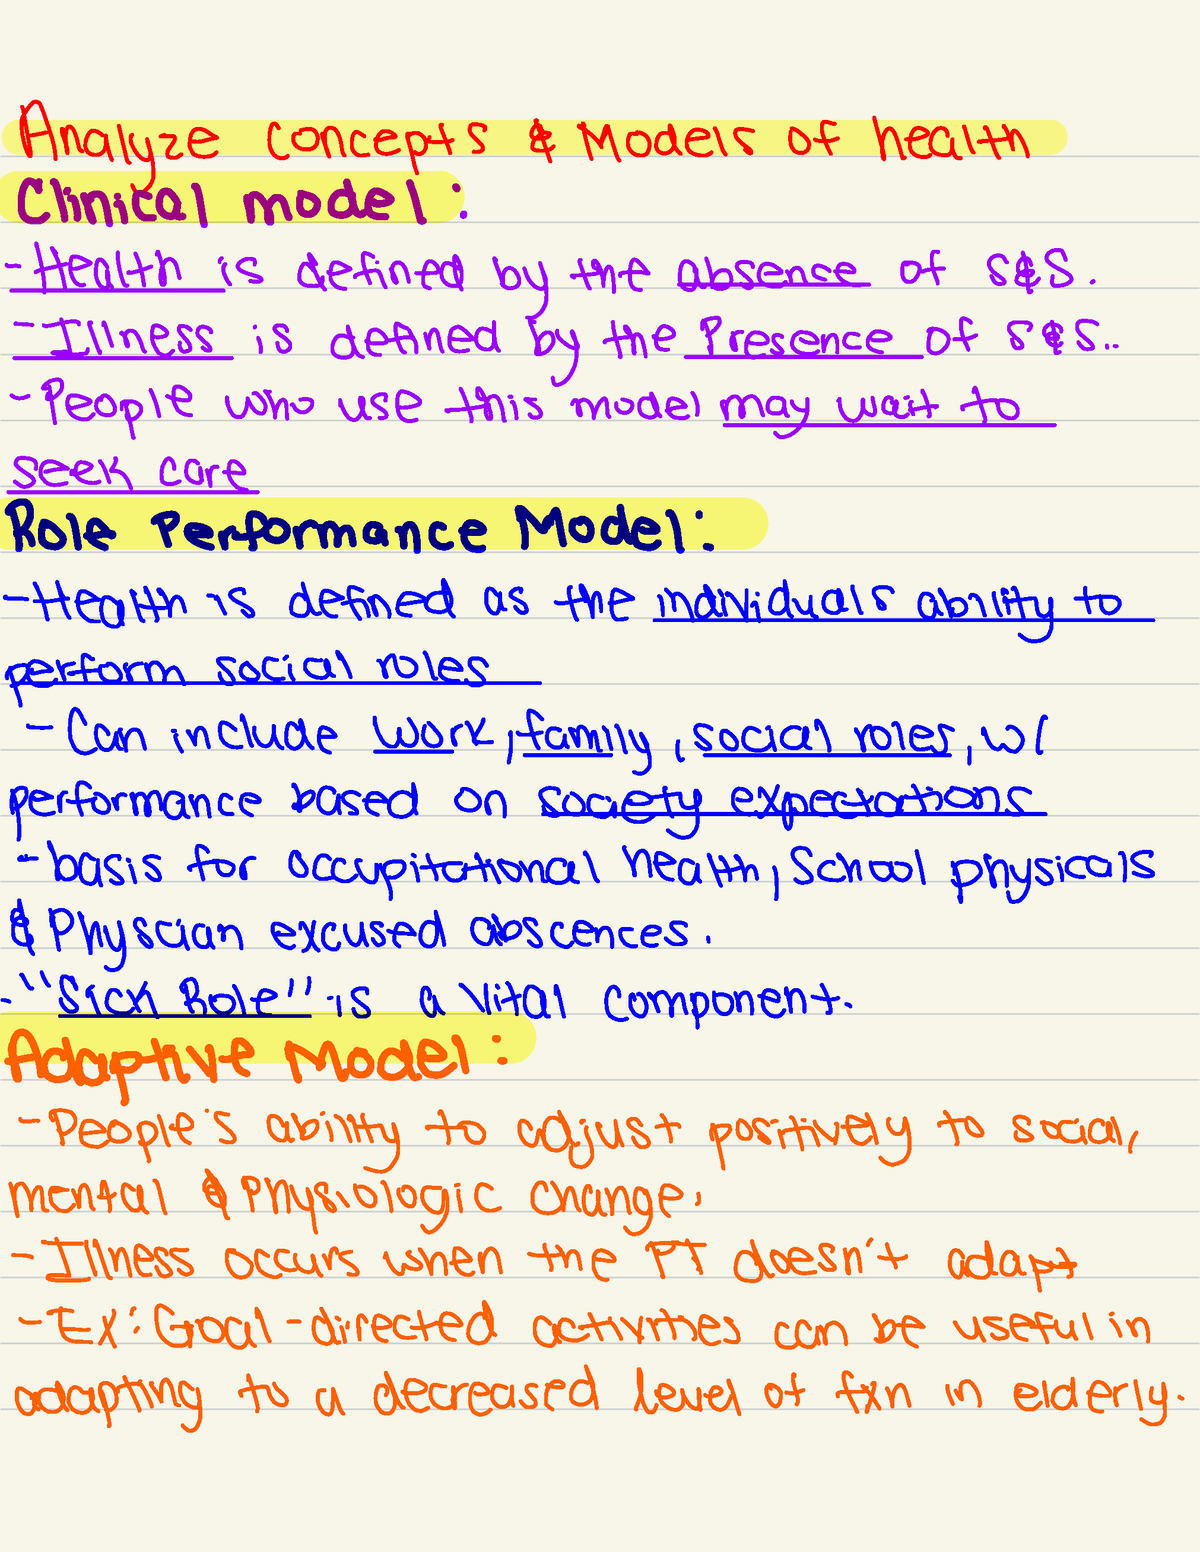 Analyze concepts & Models of health
Clinical model:
- Health is defined by the absence of S&S.
- Illness is defined by the Presence of S&S..
- People who use this model may wait to
seek care
Role Performance Model:
- Health is defined as the individuals ability to
perform social roles
- Can include work, family, social roles, w/
performance based on society expectations
- basis for occupitational health, School physicals
& Physcian excused abscences.
- "Sick Role" is a vital component.
Adaptive Model:
- People's ability to adjust positively to social,
mental & Physiologic change.
- Illness occurs when the PT doesn't adapt
- Ex: Goal-directed activities can be useful in
adapting to a decreased level of fxn in elderly.